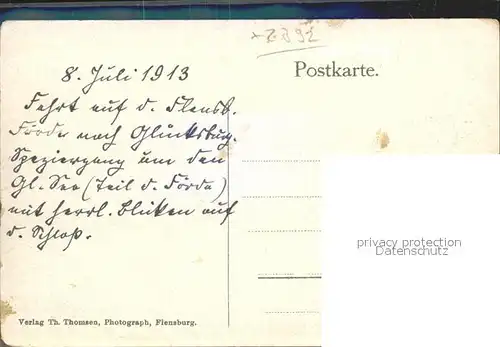 Postkarte.
8. Juli 1913
Fahrt auf d. Flensb.
Förde nach Glücksburg.
Spaziergang um den
Gl. See (Teil d. Förde)
mit herrl. Blicken auf
d. Schloß.
privacy protection
watermark
Verlag Th. Thomsen, Photograph, Flensburg.